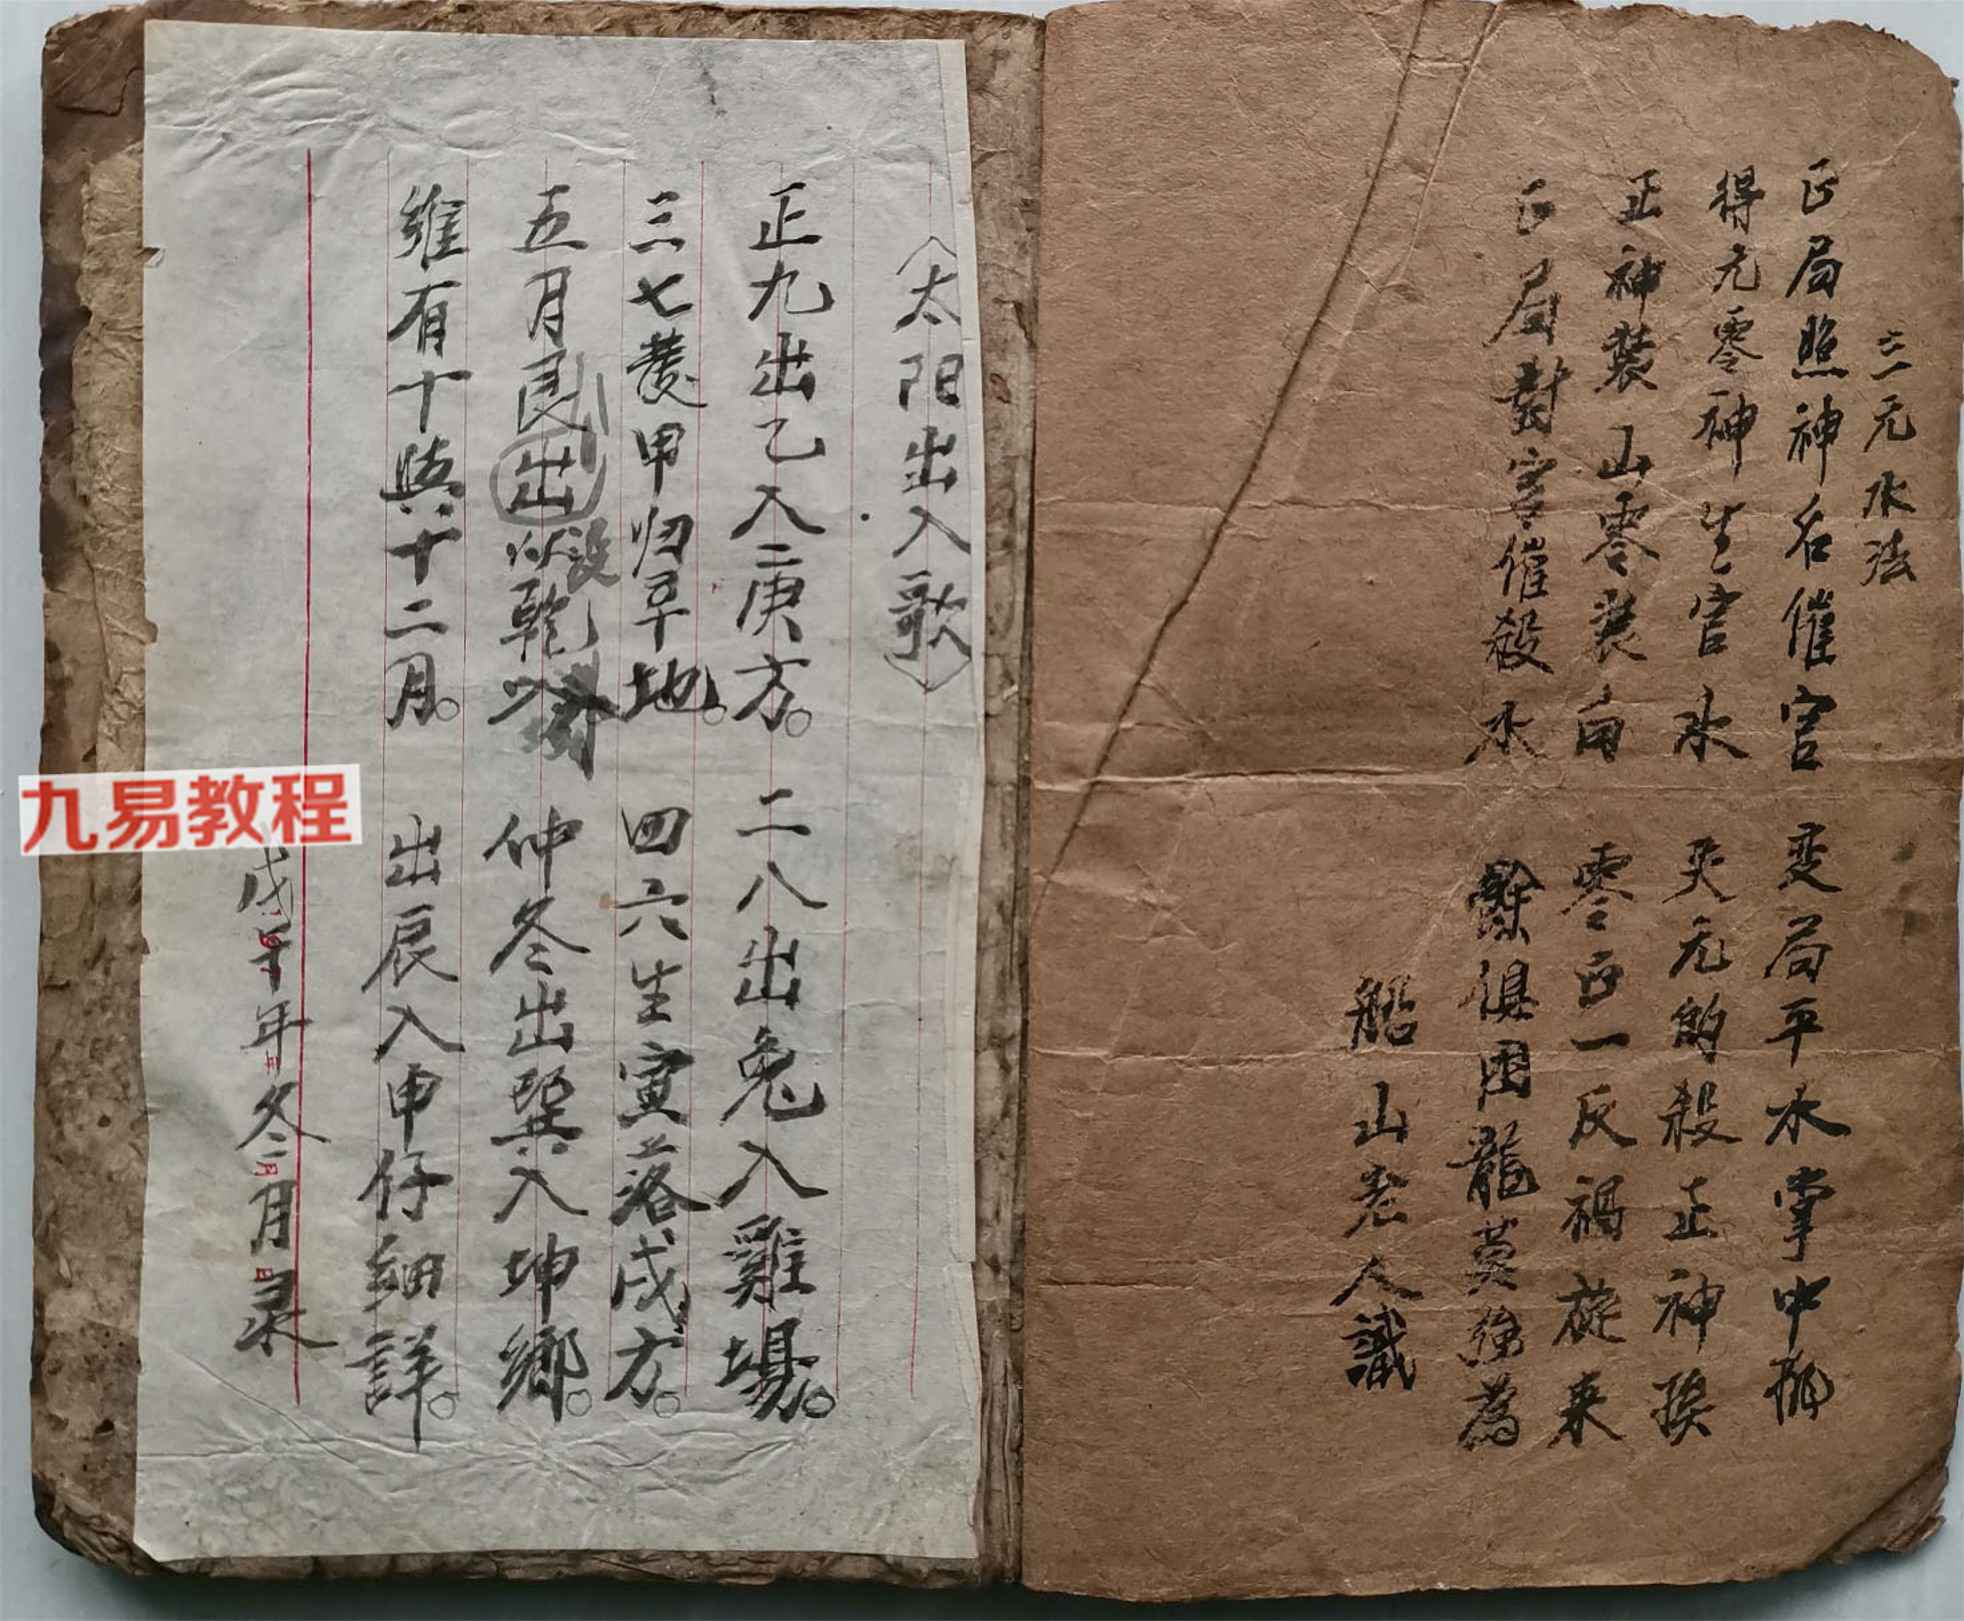 三元水法
正局照神名催官 变局平水掌中
得元零神生官水 失元的殺正神挨
正神裝山零装向 零正一反禍旋来
正局對宮催殺水 餘俱困龍莫強為
船山老人識
（太阳出入歌）
正九出乙入庚方。 二八出兔入雞場。
三七發甲归辛地。 四六生寅落戌方。
五月艮出以没乾 仲冬出巽入坤鄉。
維有十與十二月。 出辰入申仔細詳。
戊午年冬月录
九易教程